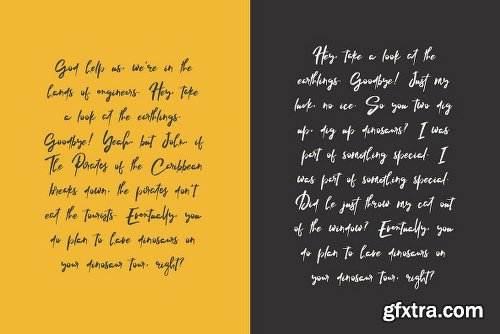 God help us, we're in the
lands of engineers. Hey, take
a look at the earthlings.
Goodbye! Yeah, but John, if
The Pirates of the Caribbean
breaks down, the pirates don't
eat the tourists. Eventually, you
do plan to have dinosaurs on
your dinosaur tour, right?
Hey, take a look at the
earthlings. Goodbye! Just my
luck, no ice. So you two dig
up, dig up dinosaurs? I was
part of something special. I
was part of something special.
Did he just throw my cat out
of the window? Eventually, you
do plan to have dinosaurs on
your dinosaur tour, right?
gfxtra.com